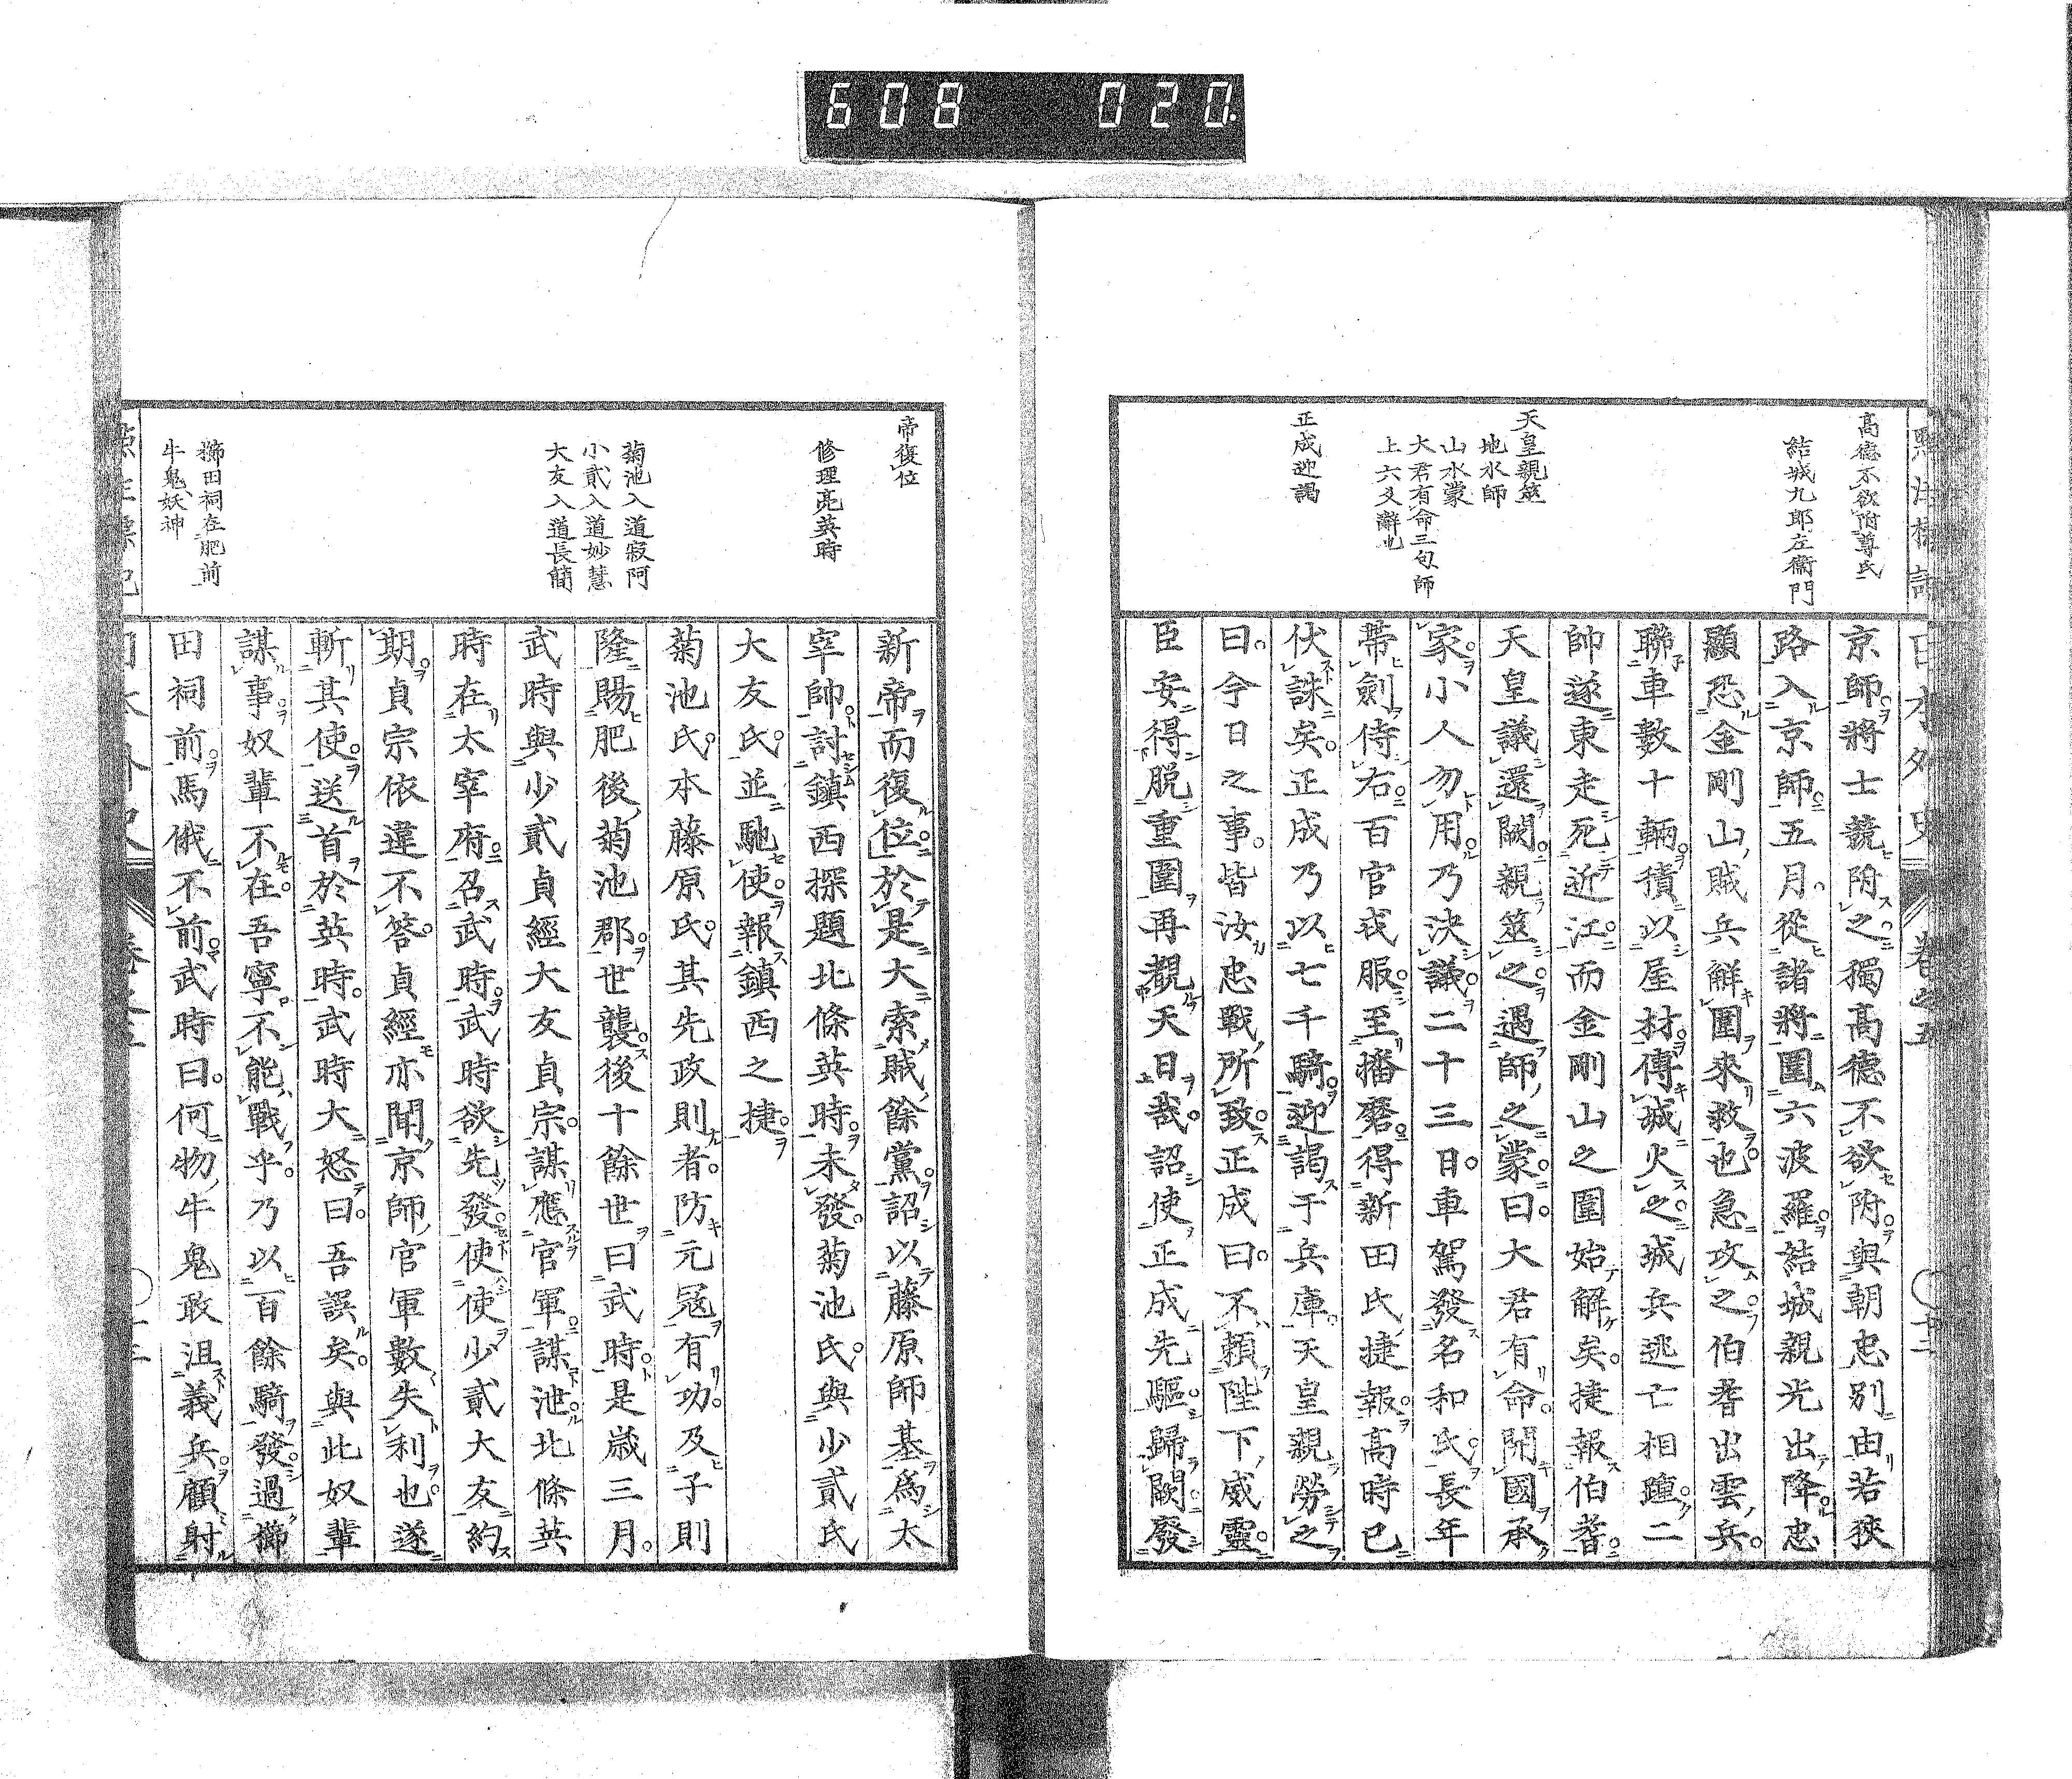 608 020
高德不欲附尊氏
結城九郎左衛門
天皇親筮
地水師
山水蒙
大君有命三句師
上六爻辭也
正成迎謁
京師將士競附之獨高德不欲附與朝忠別由若狹
路入京師五月從諸將圍六波羅結城親光出降忠
顯恐金剛山賊兵解圍來救也急攻之伯耆出雲兵
聯車數十輛積以屋材傳城火之城兵逃亡相踵二
帥遂東走死近江而金剛山之圍始解矣捷報伯耆
天皇議還闕親筮之遇師之蒙曰大君有命開國承
家小人勿用乃決議二十三日車駕發名和氏長年
帶劍侍右百官戎服至播磨得新田氏捷報高時已
伏誅矣正成乃以七千騎迎謁于兵庫天皇親勞之
曰今日之事皆汝忠戰所致正成曰不賴陛下威靈
臣安得脫重圍再觀天日哉詔使正成先驅歸闕廢
帝復位
修理亮英時
菊池入道寂阿
小貳入道妙慧
大友入道長簡
櫛田祠在肥前
牛鬼妖神
新帝而復位於是大索賊餘黨詔以藤原師基爲太
宰帥討鎮西探題北條英時未發菊池氏與少貳氏
大友氏並馳使報鎮西之捷
菊池氏本藤原氏其先政則者防元寇有功及子則
隆賜肥後菊池郡世襲後十餘世曰武時是歲三月
武時與少貳貞經大友貞宗謀應官軍謀泄北條英
時在太宰府召武時武時欲先發使使少貳大友約
期貞宗依違不答貞經亦聞京師官軍數失利也遂
斬其使送首於英時武時大怒曰吾誤矣與此奴輩
謀事奴輩不在吾寧不能戰乎乃以百餘騎發過櫛
田祠前馬俄不前武時曰何物牛鬼敢沮義兵顧射